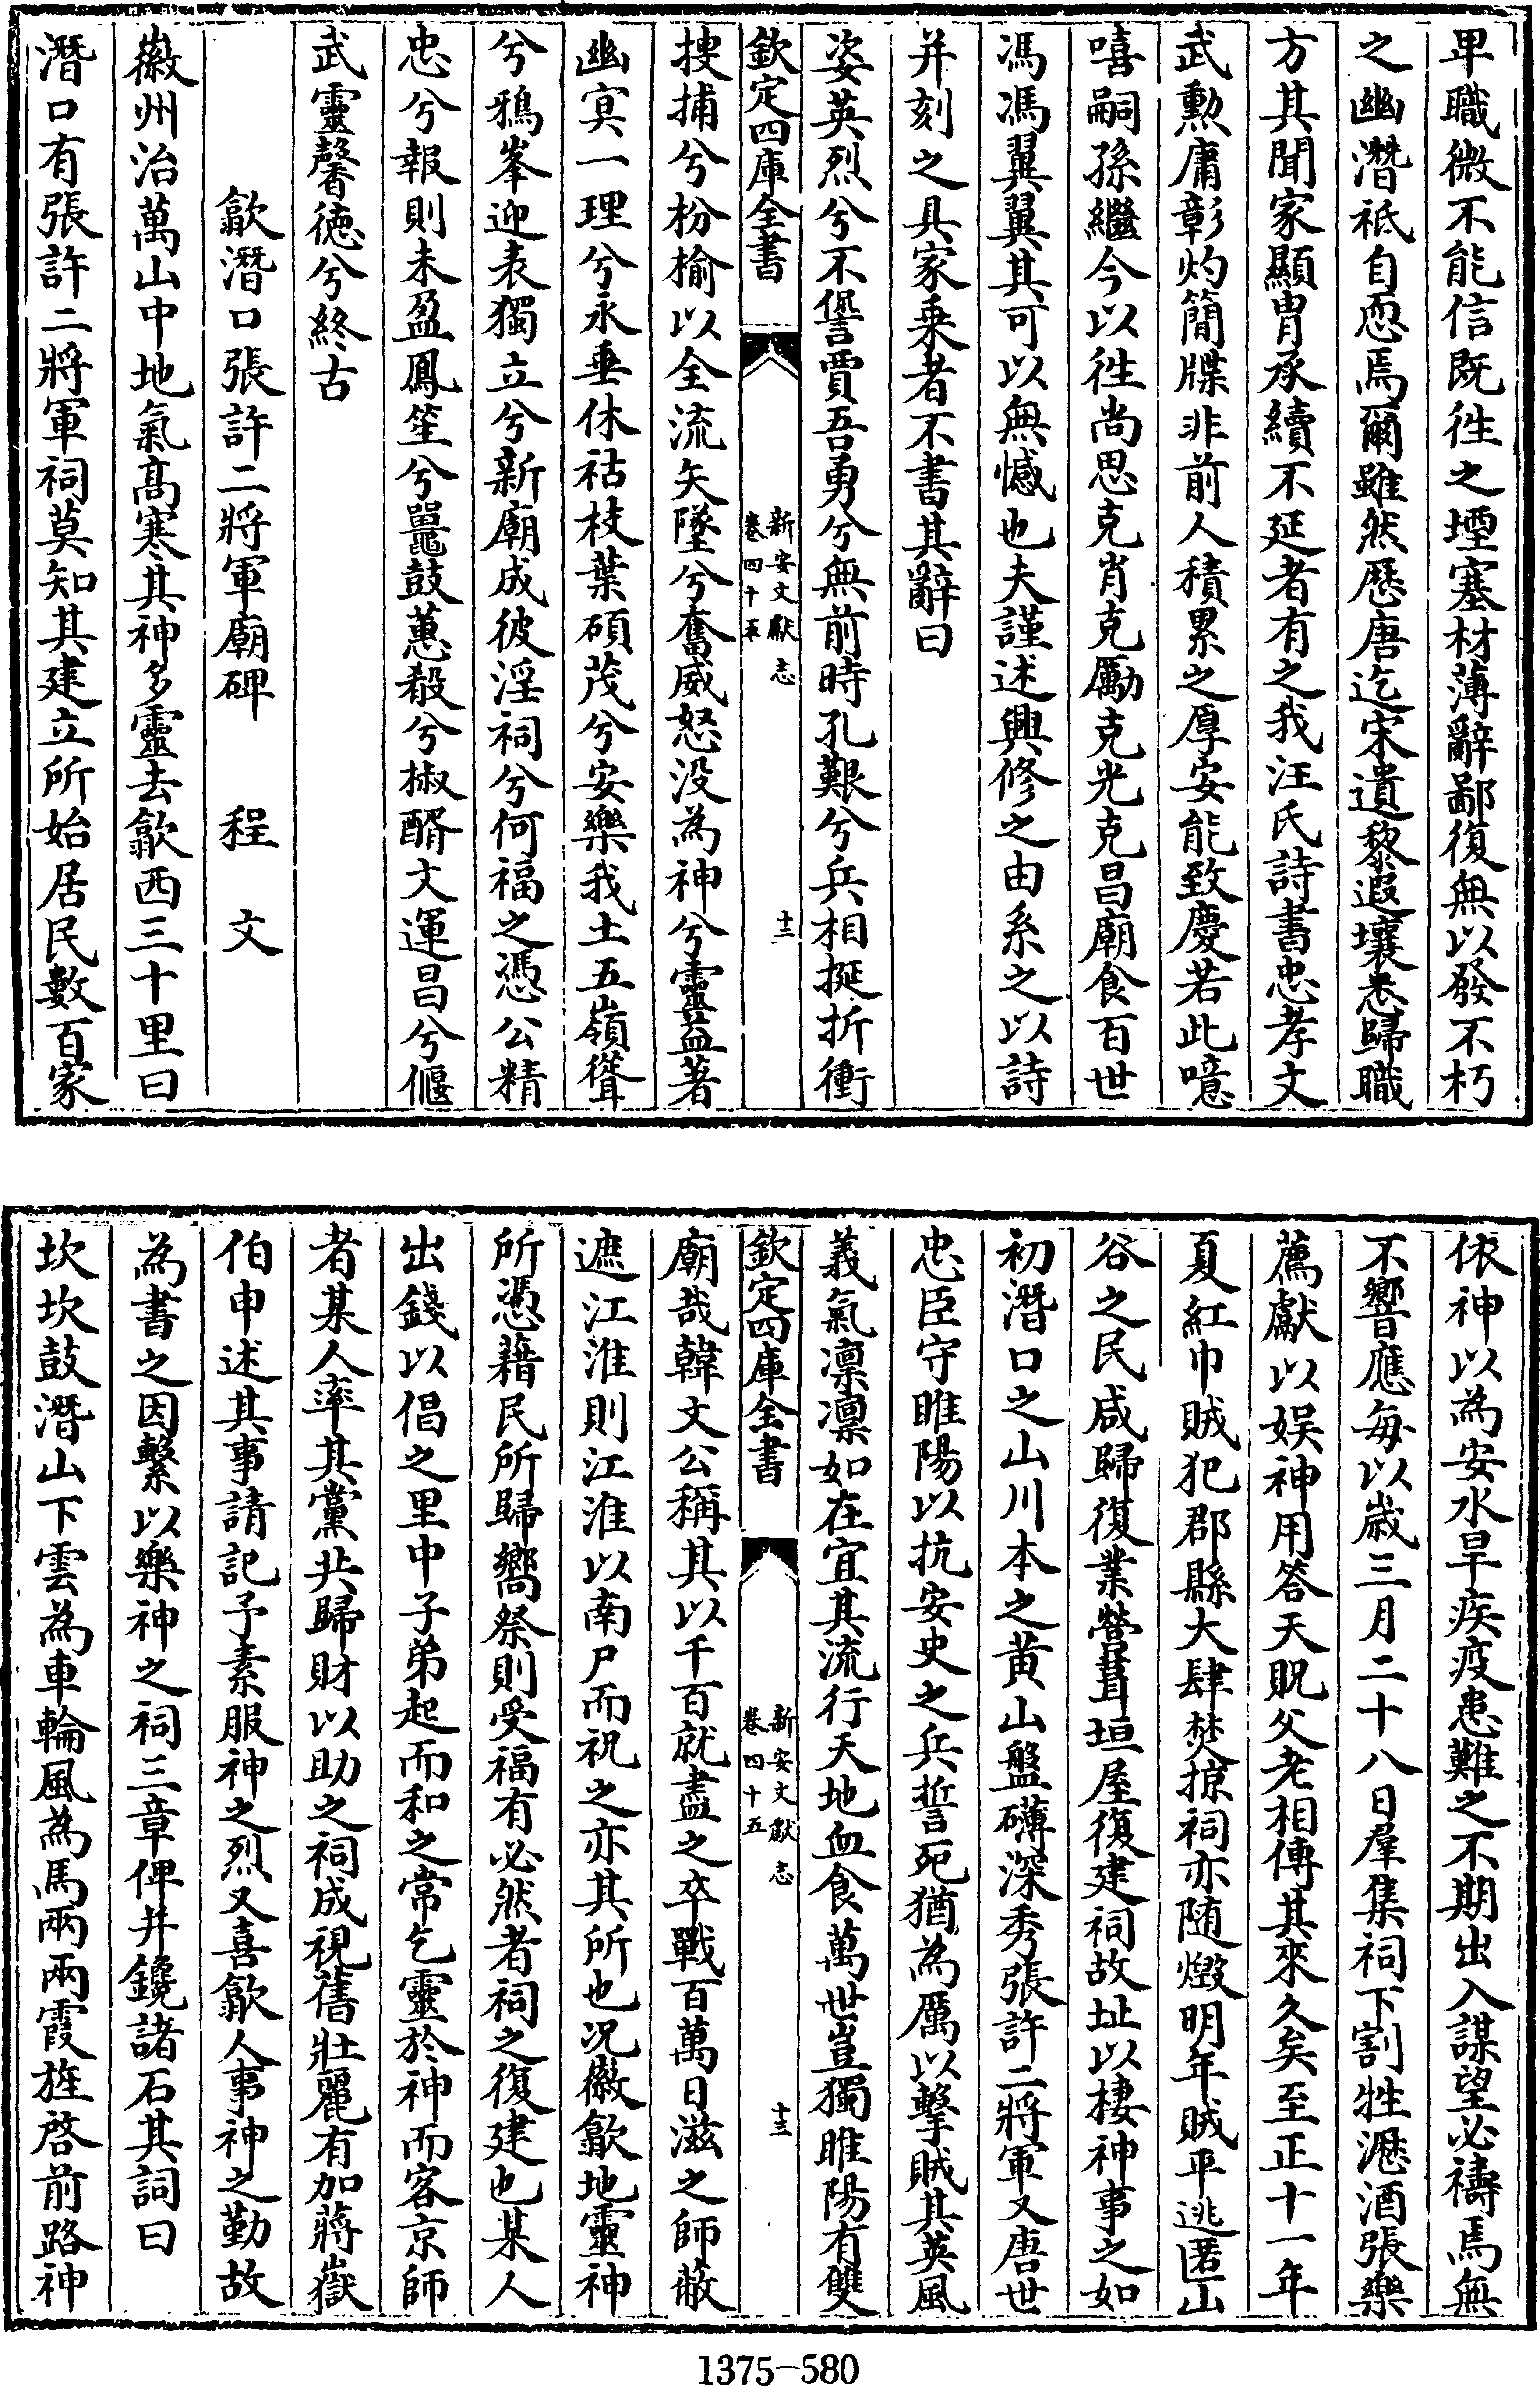 卑職微不能信既徃之堙塞材薄辭鄙復無以發不朽
之幽潛祗自恧焉爾雖然歴唐迄宋遺黎遐壤悉歸職
方其聞家顯胄承續不延者有之我汪氏詩書忠孝文
武勲庸彰灼簡牒非前人積累之厚安能致慶若此噫
嘻嗣孫繼今以徃尚思克肖克勵克光克昌廟食百世
馮馮翼翼其可以無憾也夫謹述興修之由系之以詩
并刻之具家乗者不書其辭曰
姿英烈兮不譽賈吾勇兮無前時孔艱兮兵相挻折衝
欽定四庫全書
新安文獻志
卷四十五
十二
搜捕兮枌榆以全流矢墜兮奮威怒没為神兮靈益著
幽冥一理兮永垂休祜枝葉碩茂兮安樂我土五嶺聳
兮鴉峯迎表獨立兮新廟成彼淫祠兮何福之憑公精
忠兮報則未盈鳳笙兮鼉鼓蕙殽兮椒醑文運昌兮偃
武靈馨徳兮終古
歙潛口張許二將軍廟碑　程　文
徽州治萬山中地氣髙寒其神多靈去歙西三十里曰
潛口有張許二將軍祠莫知其建立所始居民數百家
依神以為安水旱疾疫患難之不期出入謀望必禱焉無
不響應毎以嵗三月二十八日羣集祠下割牲灑酒張樂
薦獻以娯神用答天貺父老相傳其來久矣至正十一年
夏紅巾賊犯郡縣大肆焚掠祠亦随燬明年賊平逃匿山
谷之民咸歸復業營葺垣屋復建祠故址以棲神事之如
初潛口之山川本之黄山盤礴深秀張許二將軍又唐世
忠臣守睢陽以抗安史之兵誓死猶為厲以擊賊其英風
義氣凛凛如在宜其流行天地血食萬世豈獨睢陽有雙
欽定四庫全書
新安文獻志
卷四十五
十三
廟哉韓文公稱其以千百就盡之卒戰百萬日滋之師蔽
遮江淮則江淮以南尸而祝之亦其所也况徽歙地靈神
所憑藉民所歸嚮祭則受福有必然者祠之復建也某人
出錢以倡之里中子弟起而和之常乞靈於神而客京師
者某人率其黨共歸財以助之祠成視舊壯麗有加蔣嶽
伯申述其事請記予素服神之烈又喜歙人事神之勤故
為書之因繫以樂神之祠三章俾并鑱諸石其詞曰
坎坎鼓潛山下雲為車輪風為馬兩兩霞旌啓前路神
1375-580